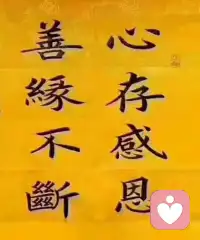 心存感恩
善緣不斷